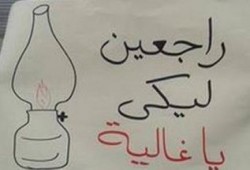 راجعين
ليكى
يا غالية